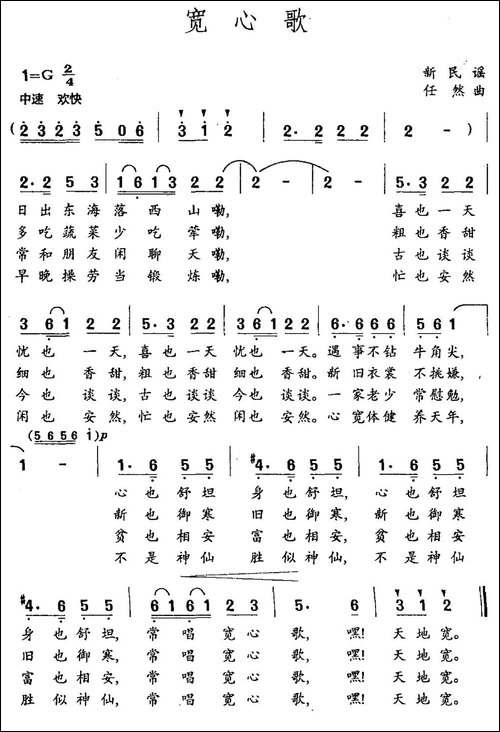 宽心歌
1=G 2/4
新民谣
中速 欢快
任然曲
( 2 3 2 3 5 0 6 | 3 1 2 | 2· 2 2 2 | 2 - ) |
2· 2 5 3 | 1 6 1 3 2 2 | 2 - | 2 - | 5· 3 2 2 |
日出东海落西山嘞, 喜也一天
多吃蔬菜少吃荤嘞, 粗也香甜
常和朋友闲聊天嘞, 古也谈谈
早晚操劳当锻炼嘞, 忙也安然
3 6 1 2 2 | 5· 3 2 2 | 3 6 1 2 2 | 6· 6 6 6 | 5 6 1 |
忧也一天,喜也一天忧也一天。遇事不钻牛角尖,
细也香甜,粗也香甜细也香甜。新旧衣裳不挑嫌,
今也谈谈,古也谈谈今也谈谈。一家老少常慰勉,
闲也安然,忙也安然闲也安然。心宽体健养天年,
(5 6 5 6 i) p
1 - | 1· 6 5 5 | #4· 6 5 5 | 1· 6 5 5 |
心也舒坦身也舒坦,心也舒坦
新也御寒旧也御寒,新也御寒
贫也相安富也相安,贫也相安
不是神仙胜似神仙,不是神仙
#4· 6 5 5 | 6 1 6 1 2 3 | 5· 6 | 3 1 2 ‖
身也舒坦,常唱宽心歌,嘿!天地宽。
旧也御寒,常唱宽心歌,嘿!天地宽。
富也相安,常唱宽心歌,嘿!天地宽。
胜似神仙,常唱宽心歌,嘿!天地宽。